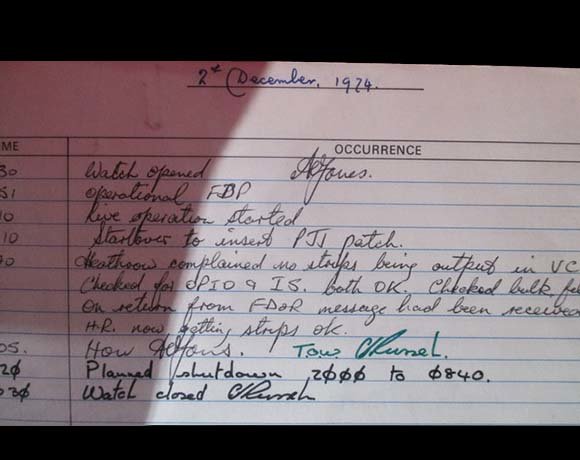 2nd December, 1974.
ME OCCURRENCE
30 Watch opened AJones.
51 Operational FDP
10 Live operation started
10 Startover to insert PJJ patch.
Heathrow complained no strips being output in VC
Checked for OPIO & IS. both OK. Checked bulk
On return from FDOR message had been received
H.R. now getting strips OK.
05. How AJones. Tow CRussell.
2Ø Planned shutdown 2ØØØ to Ø84Ø.
3Ø Watch closed CRussell